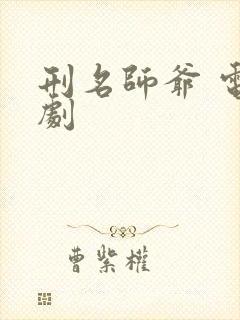 刑名師爺 電
劇
曹紫權